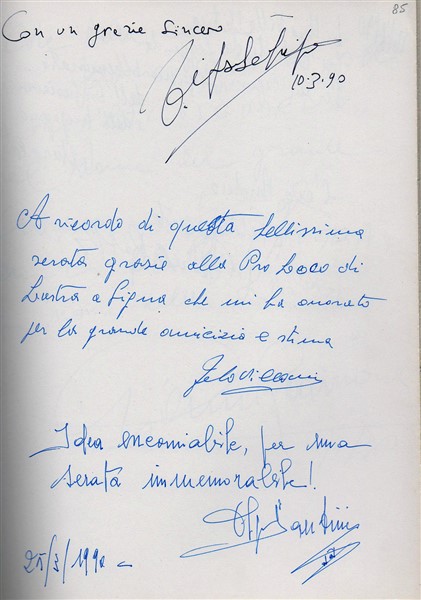 85
Con un grazie sincero
10.3.90
A ricordo di questa bellissima
serata grazie alla Pro Loco di
Lastra a Signa che mi ha onorato
per la grande amicizia e stima
Idea encomiabile, per una
serata immemorabile!
25/3/1990